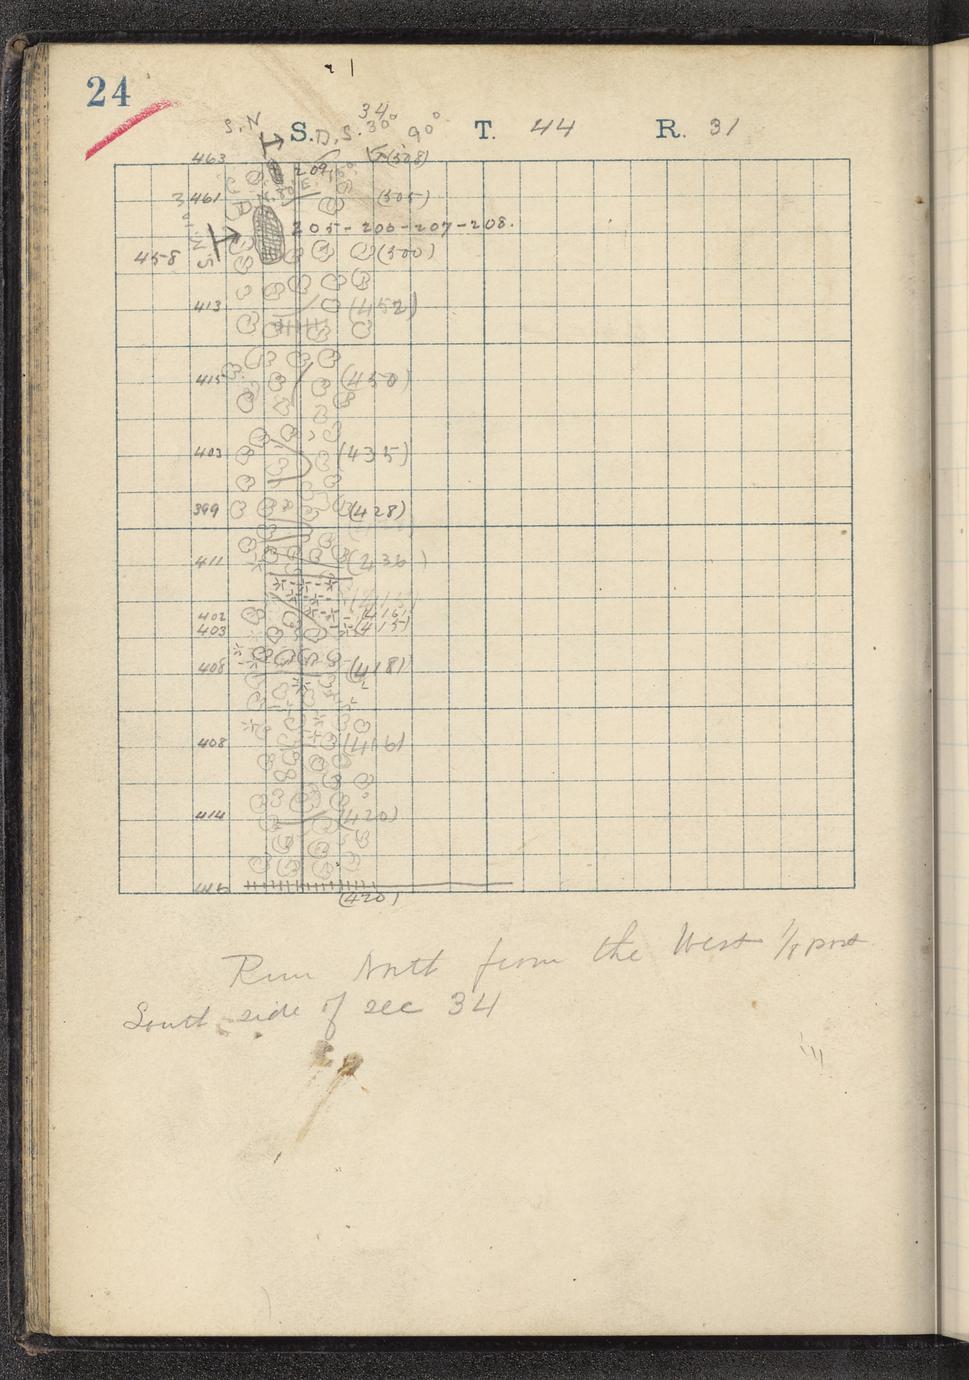 24
34
S. N S. D. S. 30° 90° T. 44 R. 31
463 209 (508)
461 (505)
205-206-207-208.
458 (500)
413 (452)
415 (450)
403 (435)
399 (428)
411 (236)
402 (416)
403 (415)
408 (418)
408 (416)
414 (420)
(420)
Run North from the West 1/8 post
South side of sec 34